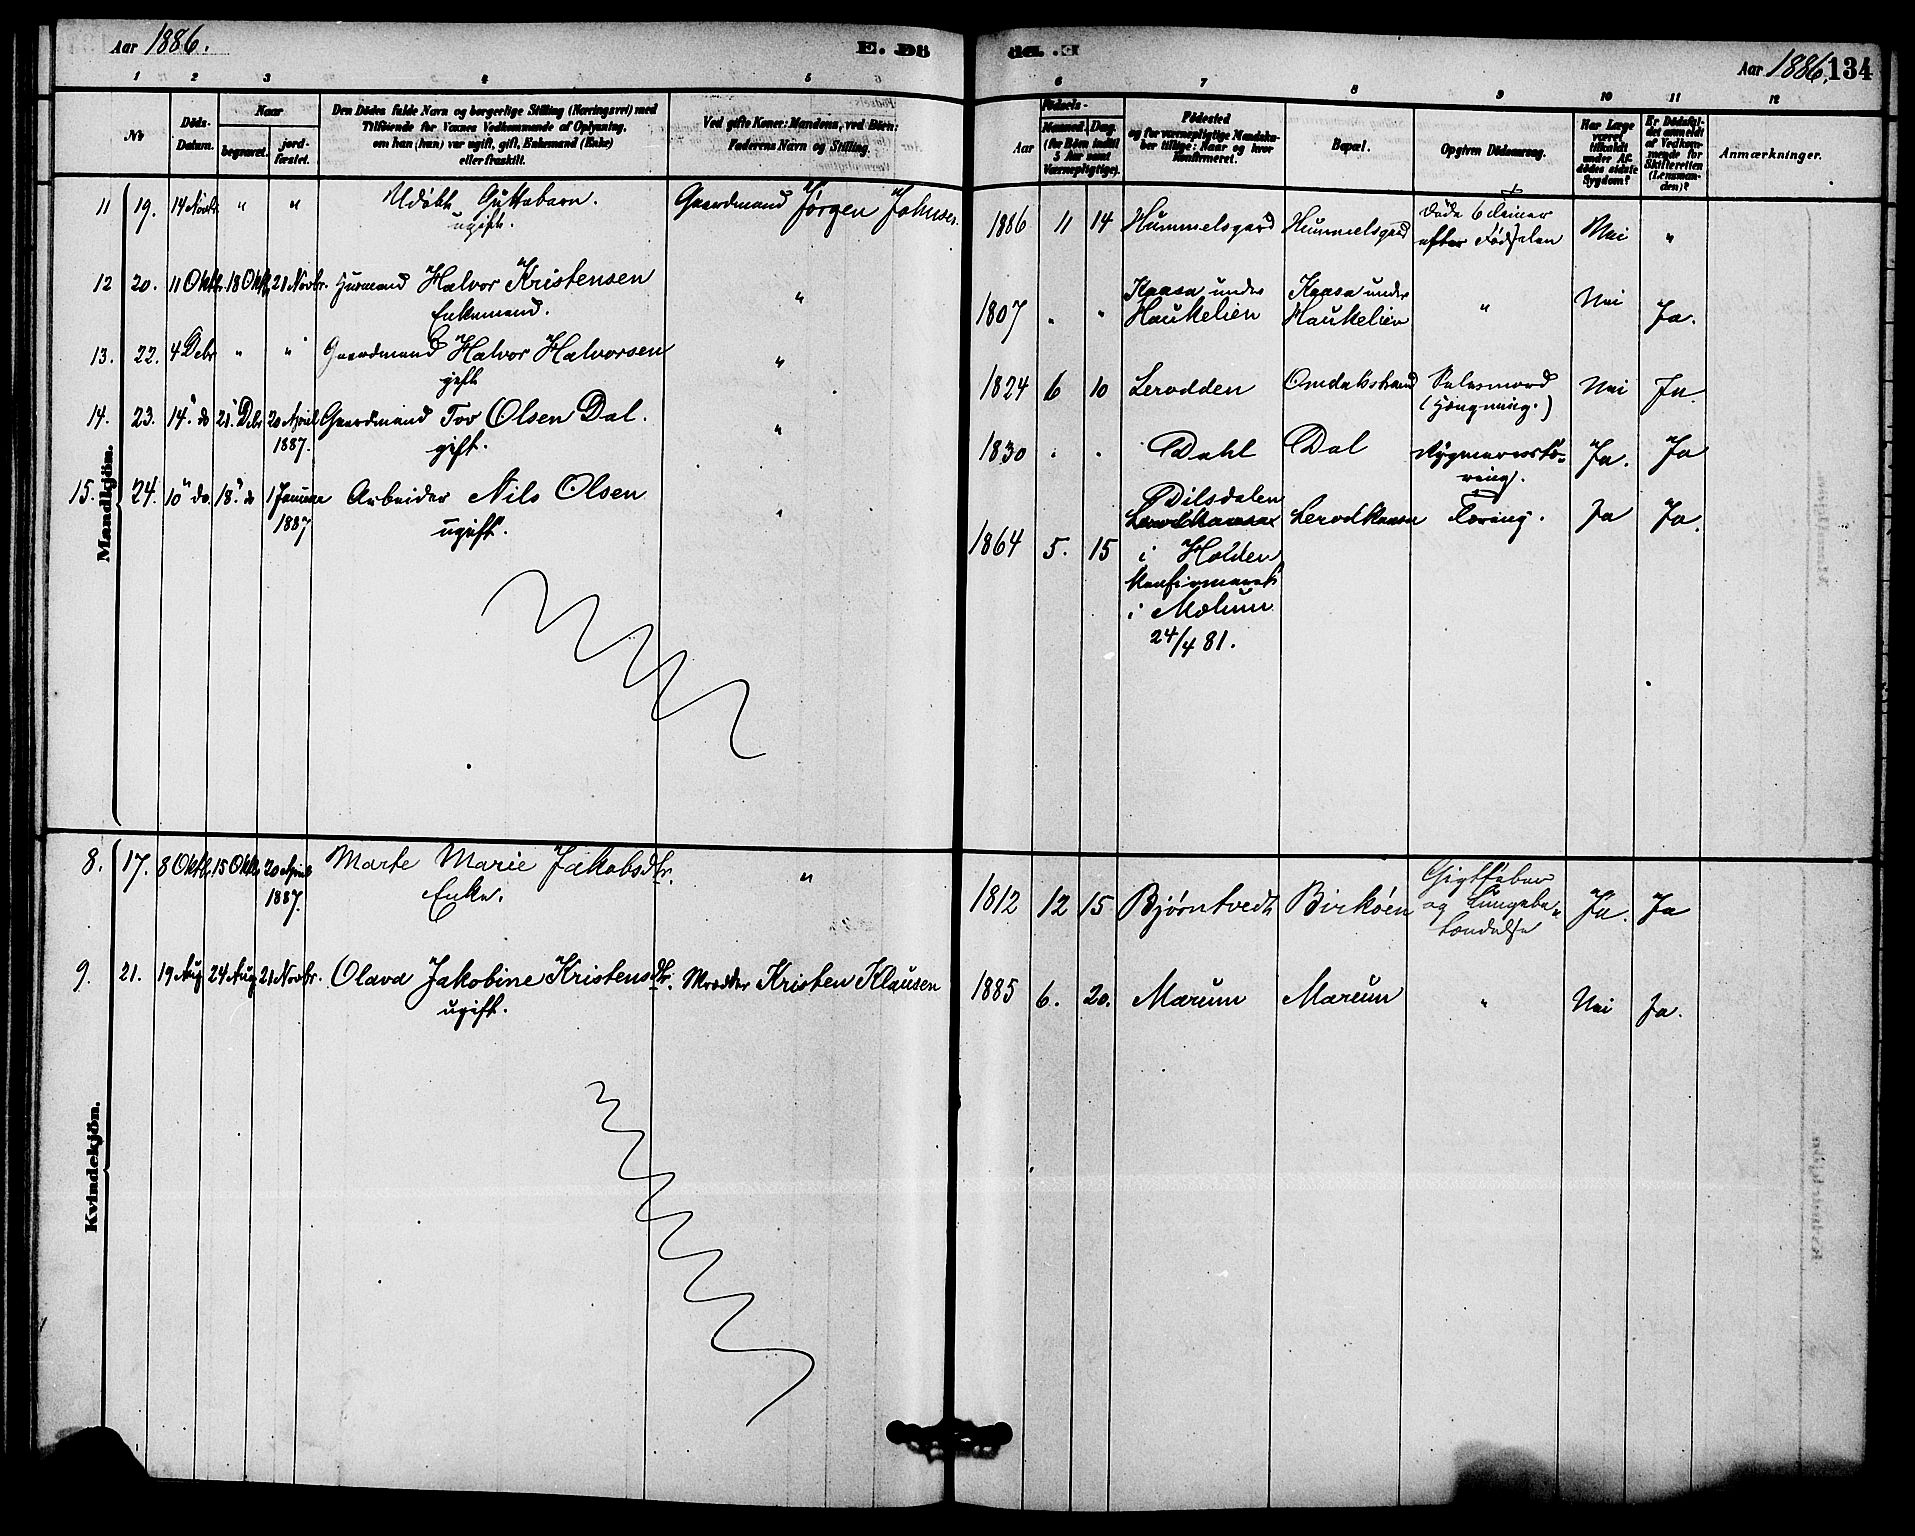 Aar 1886.
E. Dö
1 2 3 4 5
No
Döds-
Datum.
Naar
begravet.
jord-
fæstet.
Den Dödes fulde Navn og borgerlige Stilling (Næringsvei) med
Tilföiende for Voxnes Vedkommende af Oplysning,
om han (hun) var ugift, gift, Enkemand (Enke)
eller fraskilt.
Ved gifte Koner: Mandens, ved Börn:
Faderens Navn og Stilling.
Mandkjön.
11 19. 14 Novbr. " " Udöbt Guttebarn. Gaardmand Jörgen Johnsen.
ugift.
12 20. 11 Oktb. 18 Oktb. 21 Novbr. Husmand Halvor Kristensen "
Enkemand.
13. 22. 4 Debr " " Gaardmand Halvor Halvorsen "
gift
14. 23. 14" do 21" Debr 20 April Gaardmand Tov Olsen Dal. "
1887. gift.
15. 24. 10" do. 18" do 1 Januar Arbeider Nils Olsen "
1887 ugift.
Kvindekjön.
8. 17. 8 Oktb. 15 Oktb. 20 April Marte Marie Jakobsdtr. "
1887. Enke.
9. 21. 19 Aug 24 Aug 21 Novbr. Olava Jakobine Kristensdtr. Kristen Klausen
ugift.
Aar 1886. 134
6 7 8 9 10 11 12
Aar
Födsels-
Maaned. Dag.
(for Börn indtil
5 Aar samt
Værnepligtige).
Födested
og for værnepligtige Mandska-
ber tillige: Naar og hvor
Konfirmeret.
Bopæl.
Opgiven Dödsaarsag.
Har Læge
været
tilkaldt
under Af-
dödes sidste
Sygdom?
Er Dödsfal-
det anmeldt
af Vedkom-
mende for
Skifteretten
(Lensman-
den)?
Anmærkninger.
1886 11 14 Hummelsgard Hummelsgard Döde 6 Timer
efter Födselen Nei "
1807 " " Kaasa under
Haukelien Kaasa under
Haukelien " Nei Ja.
1824 6 10 Lerodden Omdalstrand Selvmord
(Hængning.) Nei Ja.
1830 " " Dahl Dal Rygmarvstæ-
ring. Ja. Ja
1864 5. 15 Dilsdalen
i Holden
konfirmeret
i Mælum
24/4 81. Lerodkaasa Tæring. Ja Ja.
1812 12 15 Bjørntvedt Birköen Gigtfeber
og Lungebe-
tændelse Ja. Ja
1885 6. 20. Mærum Mærum " Nei Ja.